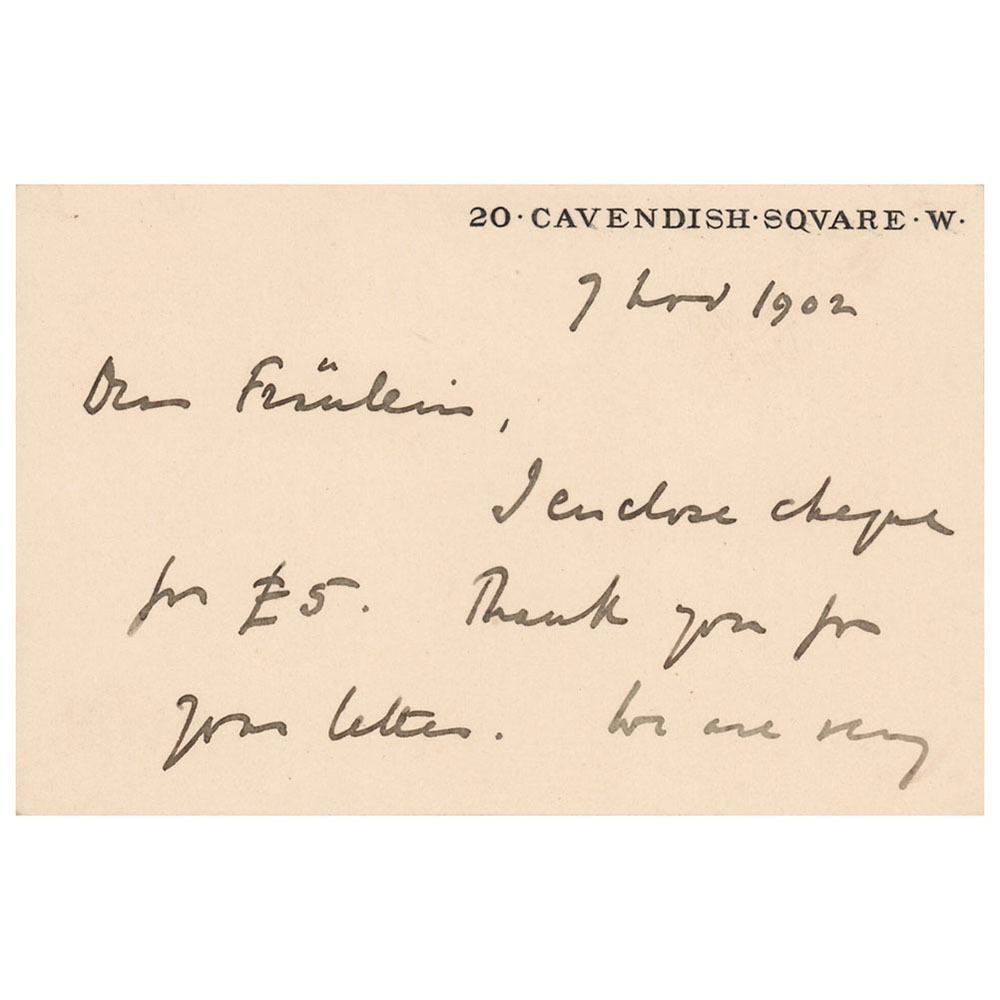 20 · CAVENDISH · SQVARE · W ·
7 Nov 1902
Dear Fräulein,
I enclose cheque
for £5. Thank you for
your letter. We are very